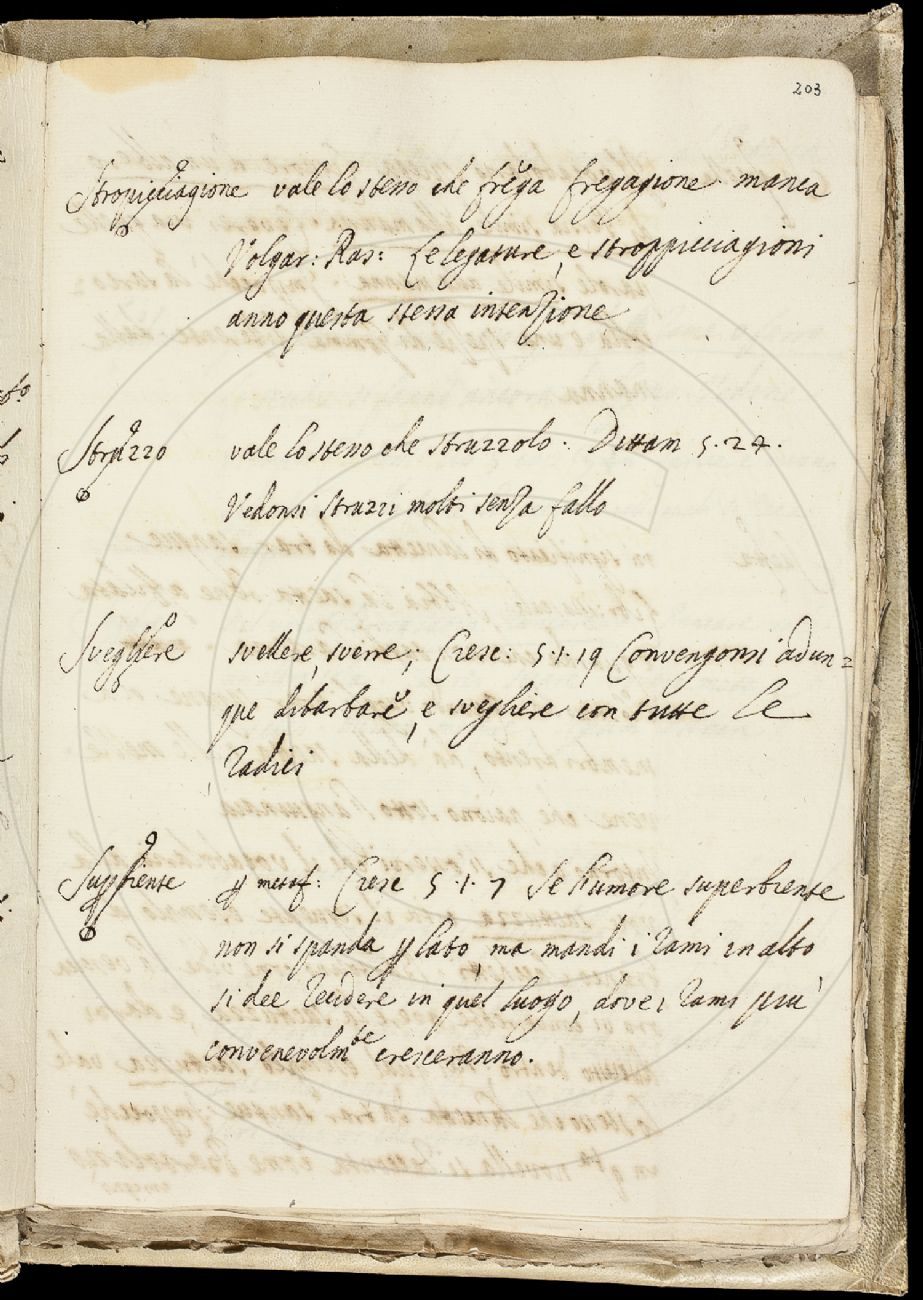 203
Stropicciagione vale lo stesso che frega fregagione manca
Volgar: Ras: Le legature, e stroppicciagioni
anno questa stessa intenzione
Struzzo vale lo stesso che struzzolo: Dittam 5.24.
Vedonsi struzzi molti senza fallo
Svegliere svellere, sverre; Cresc: 5.1.19 Convengonsi adun=
que dibarbare, e svegliere con tutte le
radici
Supbiente p metaf: Cresc 5.1.7 Se humore superbiente
non si spanda p lato, ma mandi i rami in alto
si dee recidere in quel luogo, dove i rami più
convenevolmte cresceranno.